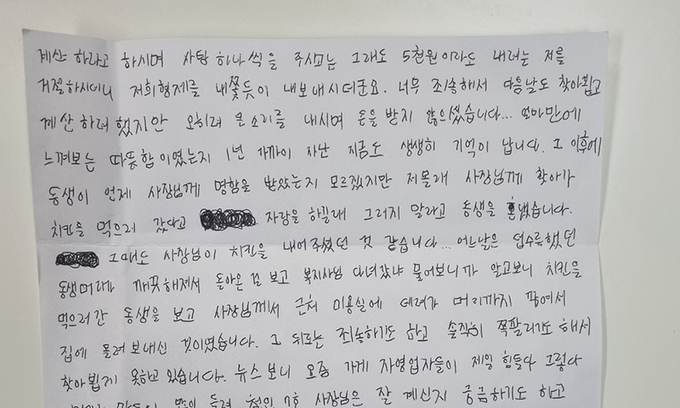 계산 하라고 하시며 사탕 하나씩을 주시고는 그래도 5천원이라도 내려는 저를
거절하시더니 저희형제를 내쫓듯이 내보내시더군요. 너무 죄송해서 다음날도 찾아뵙고
계산 하려했지만 오히려 큰소리를 내시며 돈을 받지 않으셨습니다... 얼마만에
느껴보는 따뜻함이였는지 1년 가까이 지난 지금도 생생히 기억이 납니다. 그 이후에
동생이 언제 사장님께 명함을 받았는지 모르겠지만 저몰래 사장님께 찾아가
치킨을 먹으러 갔다고 자랑을 하길래 그러지 말라고 동생을 혼냈습니다.
그때도 사장님이 치킨을 내어주셨던 것 같습니다... 어느날은 덥수룩했던
동생머리가 깨끗해져서 돌아온 걸 보고 복지사님 다녀갔냐 물어보니까 알고보니 치킨을
먹으러간 동생을 보고 사장님께서 근처 미용실에 데려가 머리까지 깎여서
집에 돌려보내신 것이였습니다. 그 뒤로는 죄송하기도 하고 솔직히 쪽팔리기도 해서
찾아뵙지 못하고 있습니다. 뉴스 보니 요즘 가게 자영업자들이 제일 힘들다 그렇다
사장님은 잘 계신지 궁금하기도 하고